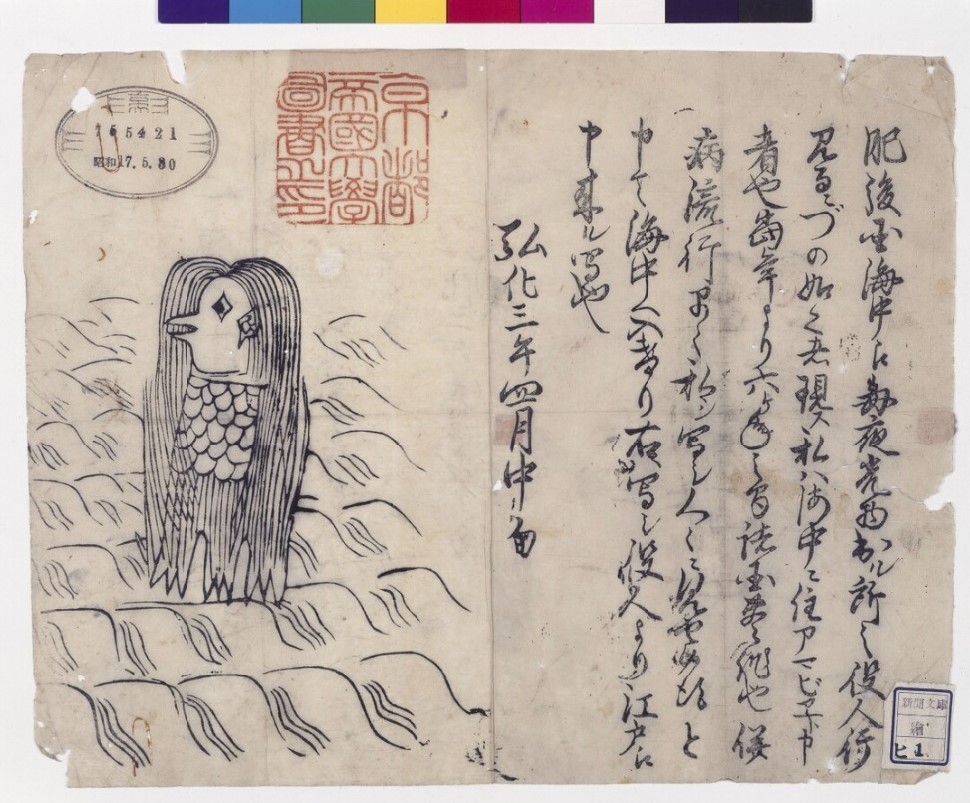 肥後国海中え毎夜光物出ル所之役人行
見るニづの如之者現ス私ハ海中ニ住アマビヱト申
者也当年より六ヶ年之間諸国豊作也併
病流行早々私ヲ写シ人々ニ見せ候得と
申て海中へ入けり右写シ役人より江戸え
申来ル写也
弘化三年四月中旬
京都
帝國大學
圖書之印
昭和17.5.30
新聞文庫
繪
ヒ 1